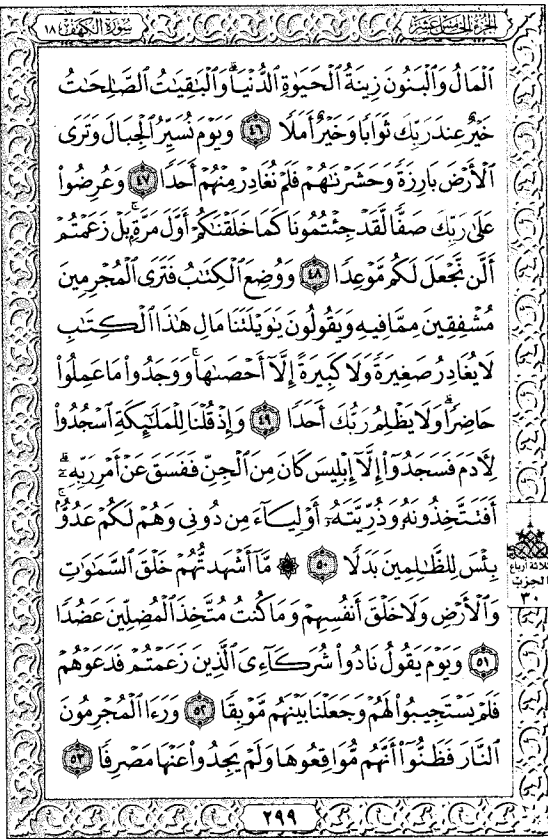 الجزء الخامس عشر
سورة الكهف ١٨
ٱلْمَالُ وَٱلْبَنُونَ زِينَةُ ٱلْحَيَوٰةِ ٱلدُّنْيَا ۖ وَٱلْبَٰقِيَٰتُ ٱلصَّٰلِحَٰتُ
خَيْرٌ عِندَ رَبِّكَ ثَوَابًا وَخَيْرٌ أَمَلًا ٤٦ وَيَوْمَ نُسَيِّرُ ٱلْجِبَالَ وَتَرَى
ٱلْأَرْضَ بَارِزَةً وَحَشَرْنَٰهُمْ فَلَمْ نُغَادِرْ مِنْهُمْ أَحَدًا ٤٧ وَعُرِضُوا۟
عَلَىٰ رَبِّكَ صَفًّا لَّقَدْ جِئْتُمُونَا كَمَا خَلَقْنَٰكُمْ أَوَّلَ مَرَّةٍۭ ۚ بَلْ زَعَمْتُمْ
أَلَّن نَّجْعَلَ لَكُم مَّوْعِدًا ٤٨ وَوُضِعَ ٱلْكِتَٰبُ فَتَرَى ٱلْمُجْرِمِينَ
مُشْفِقِينَ مِمَّا فِيهِ وَيَقُولُونَ يَٰوَيْلَتَنَا مَالِ هَٰذَا ٱلْكِتَٰبِ
لَا يُغَادِرُ صَغِيرَةً وَلَا كَبِيرَةً إِلَّآ أَحْصَىٰهَا ۚ وَوَجَدُوا۟ مَا عَمِلُوا۟
حَاضِرًا ۗ وَلَا يَظْلِمُ رَبُّكَ أَحَدًا ٤٩ وَإِذْ قُلْنَا لِلْمَلَٰٓئِكَةِ ٱسْجُدُوا۟
لِءَادَمَ فَسَجَدُوٓا۟ إِلَّآ إِبْلِيسَ كَانَ مِنَ ٱلْجِنِّ فَفَسَقَ عَنْ أَمْرِ رَبِّهِۦٓ ۗ
أَفَتَتَّخِذُونَهُۥ وَذُرِّيَّتَهُۥٓ أَوْلِيَآءَ مِن دُونِى وَهُمْ لَكُمْ عَدُوٌّۢ ۚ
بِئْسَ لِلظَّٰلِمِينَ بَدَلًا ٥٠ ۞ مَّآ أَشْهَدتُّهُمْ خَلْقَ ٱلسَّمَٰوَٰتِ
وَٱلْأَرْضِ وَلَا خَلْقَ أَنفُسِهِمْ وَمَا كُنتُ مُتَّخِذَ ٱلْمُضِلِّينَ عَضُدًا
٥١ وَيَوْمَ يَقُولُ نَادُوا۟ شُرَكَآءِىَ ٱلَّذِينَ زَعَمْتُمْ فَدَعَوْهُمْ
فَلَمْ يَسْتَجِيبُوا۟ لَهُمْ وَجَعَلْنَا بَيْنَهُم مَّوْبِقًا ٥٢ وَرَءَا ٱلْمُجْرِمُونَ
ٱلنَّارَ فَظَنُّوٓا۟ أَنَّهُم مُّوَاقِعُوهَا وَلَمْ يَجِدُوا۟ عَنْهَا مَصْرِفًا ٥٣
ثلاثة أرباع
الحزب
٣٠
٢٩٩